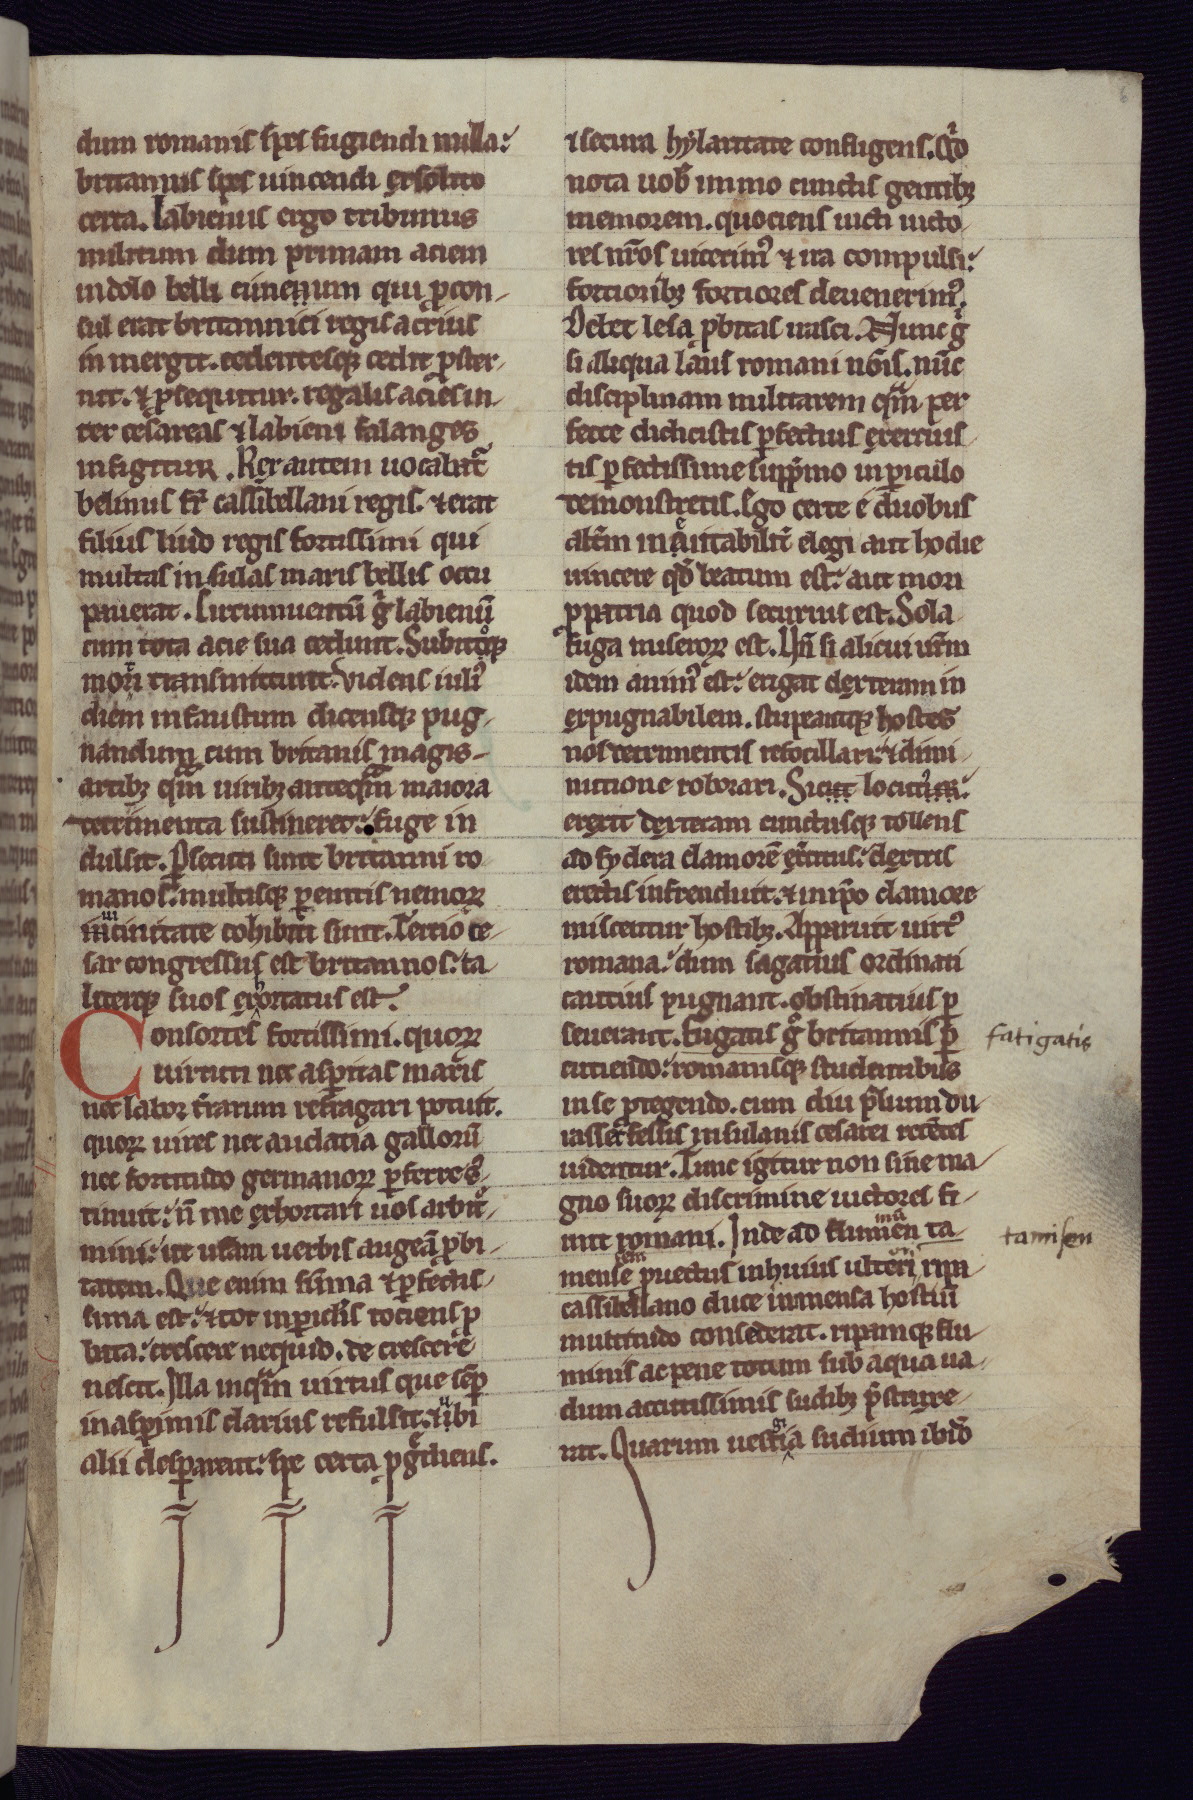 dum romanis spes fugiendi nulla:
britannis spes uincendi exsolito
certa. Labienus ergo tribunus
militum dum primam aciem
indolo belli cunennum qui ꝓcon-
sul erat britannici regis acrius
in mergit. cedentesqꝫ cedit ꝓster-
nit. & ꝓsequitur. regalis acies in-
ter cesareas & labieni falanges
infigitur. Rex autem uocabat᷑
belinus fr̄ cassibellani regis. & erat
filius liudo regis fortissimi qui
multas insulas maris bellis occu
pauerat. Circumuentū g̊ labienū
cum tota acie sua cedunt. Subitoqꝫ
mori transmittunt. Videns iuliꝰ
diem infaustum dicensqꝫ pug-
nandum cum britanis magis-
artibꝫ qͣm uiribꝫ anteqͣm maiora
detrimenta sustineret: fuge in
dulsit. ꝑsecuti sunt britanni ro-
manos. multisqꝫ ꝑemtis nemoꝝ
uicinitate cohibiti sunt. Tercio ce-
sar congressus est britannos. ta-
literqꝫ suos exhortatus est.
Consortes fortissimi. quoꝝ
uirtuti nec asꝑitas maris
nec labor t̄rarum refragari potuit.
quoꝝ uires nec audatia gallorū
nec fortitudo germanoꝝ ꝑferre sꝰ-
tinuit: n̄ me exhortari uos arbit̊-
mini: ut ur̄am uerbis augeā ꝓbi-
tatem. Que enim sūma & ꝑfectis-
sima est: & tot inꝑiclīs tociens ꝓ
bata: crescere nequid. de crescere
nescit. Illa inqͣm uirtus que sēꝑ
inasꝑrimis clarius refulsit. & ubi
alii desꝑarent: spe certa ꝓg̊diens.
& secura hylaritate confligens. Qd̊
nota uob̄ immo cunctis gentibꝫ
memorem. quociens uicti uicto-
res nr̄os uicerimꝰ & ita compulsi:
fortioribꝫ fortiores deuenerimꝰ.
Debet lesa ꝓbitas irasci. Nunc g̊
si aliqua laus romani nōis. nūc
disciplinam militarem qͣm per
fecte didicistis ꝑfectius exercius-
tis ꝑfectissime supp̄mo inꝑiculo
demonstretis. Ego certe ē duobus
altēm ineuitabilit̄ elegi aut hodie
uincere qd̄ beatum est: aut mori
ꝓ patria quod securius est. Sola
fuga miseroꝝ est. Hn̄ si alicui ur̄m
idem animꝰ est: erigat dexteram in
expugnabilem. stupeantqꝫ hostes
nos detrimentis refocillari: & dimi-
nutione roborari. Sicut locutus:
exerit dexteram cunctusqꝫ tollens
ad sydera clamorē exc̄itus: dextris
erectis infrenduit. & inip̄o clamore
miscentur hostibꝫ. Apparuit uirtꝰ
romana. dum sagatius ordinati
cautius pugnant. obstinatius ꝑ
seuerant. Fugatis g̊ britannis ꝑ
fatigatis
cutiendo: romanisqꝫ studentibus
inse ꝓtegendo. cum diu p̄lium du-
rasset: fessis insulanis cesarei recētes
uidentur. Tunc igitur non sine ma-
gno suoꝝ discrimine uictores fi-
unt romani. Inde ad flumen ta-
tamisen
mense ꝓuectus inhuius ulteri ripa
cassibellano duce inmensa hostiū
multitudo consederat. ripamqꝫ flu-
minis ac pene totum sub aqua ua-
dum accutissimis sudibꝫ p̄struxe-
rat. Quarum uestigia sudium ibidē